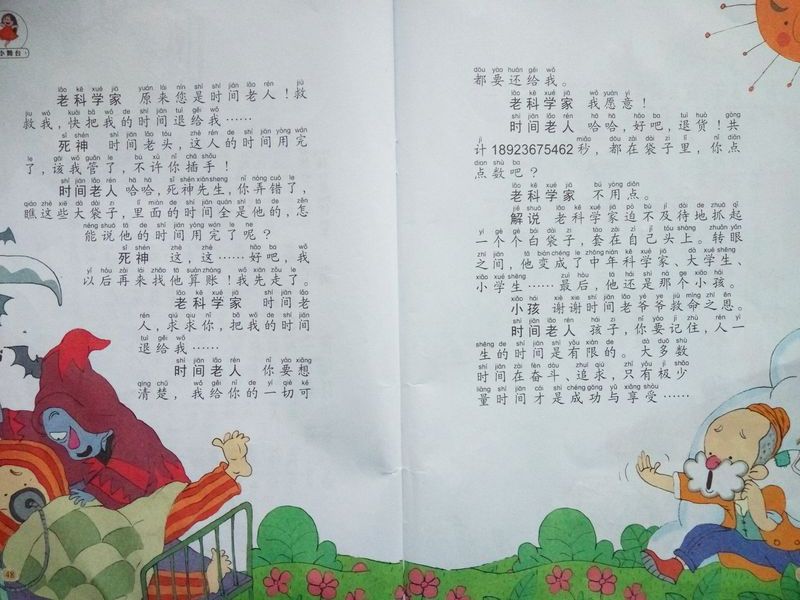 小舞台
lǎo kē xué jiā yuán lái nín shì shí jiān lǎo rén jiù
老科学家 原来您是时间老人！救
jiu wǒ kuài bǎ wǒ de shí jiān tuì gěi wǒ
救我，快把我的时间退给我……
sǐ shén shí jiān lǎo tóu zhè rén de shí jiān yòng wán
死神 时间老头，这人的时间用完
le gāi wǒ guǎn le bù xǔ nǐ chā shǒu
了，该我管了，不许你插手！
shí jiān lǎo rén hā hā sǐ shén xiān sheng nǐ nòng cuò le
时间老人 哈哈，死神先生，你弄错了，
qiáo zhè xiē dà dài zi lǐ miàn de shí jiān quán shì tā de zěn
瞧这些大袋子，里面的时间全是他的，怎
néng shuō tā de shí jiān yòng wán le ne
能说他的时间用完了呢？
sǐ shén zhè zhè hǎo ba wǒ
死神 这，这……好吧，我
yǐ hòu zài lái zhǎo tā suàn zhàng wǒ xiān zǒu le
以后再来找他算账！我先走了。
lǎo kē xué jiā shí jiān lǎo
老科学家 时间老
rén qiú qiu nǐ bǎ wǒ de shí jiān
人，求求你，把我的时间
tuì gěi wǒ
退给我……
shí jiān lǎo rén nǐ yào xiǎng
时间老人 你要想
qīng chǔ wǒ gěi nǐ de yí qiè kě
清楚，我给你的一切可
48
dōu yào huán gěi wǒ
都要还给我。
lǎo kē xué jiā wǒ yuàn yì
老科学家 我愿意！
shí jiān lǎo rén hā hā hǎo ba tuì huò gòng
时间老人 哈哈，好吧，退货！共
jì miǎo dōu zài dài zi lǐ nǐ diǎn
计18923675462秒，都在袋子里，你点
diǎn shù ba
点数吧？
lǎo kē xué jiā bú yòng diǎn
老科学家 不用点。
jiě shuō lǎo kē xué jiā pò bù jí dài de zhuā qǐ
解说 老科学家迫不及待地抓起
yí gè gè bái dài zi tào zài zì jǐ tóu shàng zhuǎn yǎn
一个个白袋子，套在自己头上。转眼
zhī jiān tā biàn chéng le zhōng nián kē xué jiā dà xué shēng
之间，他变成了中年科学家、大学生、
xiǎo xué shēng zuì hòu tā hái shì nà ge xiǎo hái
小学生……最后，他还是那个小孩。
xiǎo hái xiè xie shí jiān lǎo yé ye jiù mìng zhī ēn
小孩 谢谢时间老爷爷救命之恩。
shí jiān lǎo rén hái zi nǐ yào jì zhù rén yì
时间老人 孩子，你要记住，人一
shēng de shí jiān shì yǒu xiàn de dà duō shù
生的时间是有限的。大多数
shí jiān zài fèn dòu zhuī qiú zhǐ yǒu jí shǎo
时间在奋斗、追求，只有极少
liàng shí jiān cái shì chéng gōng yǔ xiǎng shòu
量时间才是成功与享受……